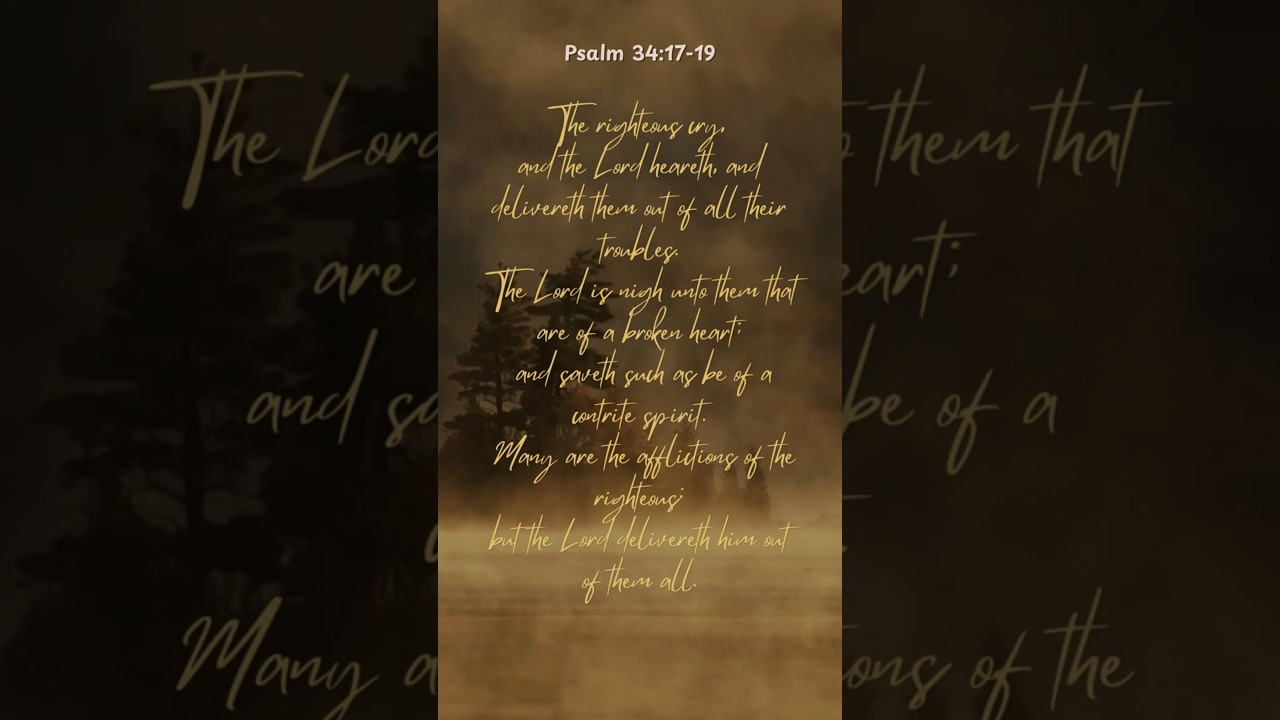 Psalm 34:17-19
The righteous cry,
and the Lord heareth, and
delivereth them out of all their
troubles.
The Lord is nigh unto them that
are of a broken heart;
and saveth such as be of a
contrite spirit.
Many are the afflictions of the
righteous;
but the Lord delivereth him out
of them all.